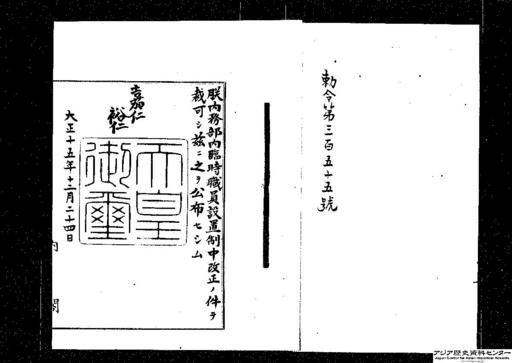 勅令第三百五十五號
朕内務部内臨時職員設置制中改正ノ件ヲ
裁可シ茲ニ之ヲ公布セシム
嘉仁
裕仁
天皇
御璽
大正十五年十二月二十四日
内閣
アジア歴史資料センター
Japan Center for Asian Historical Records